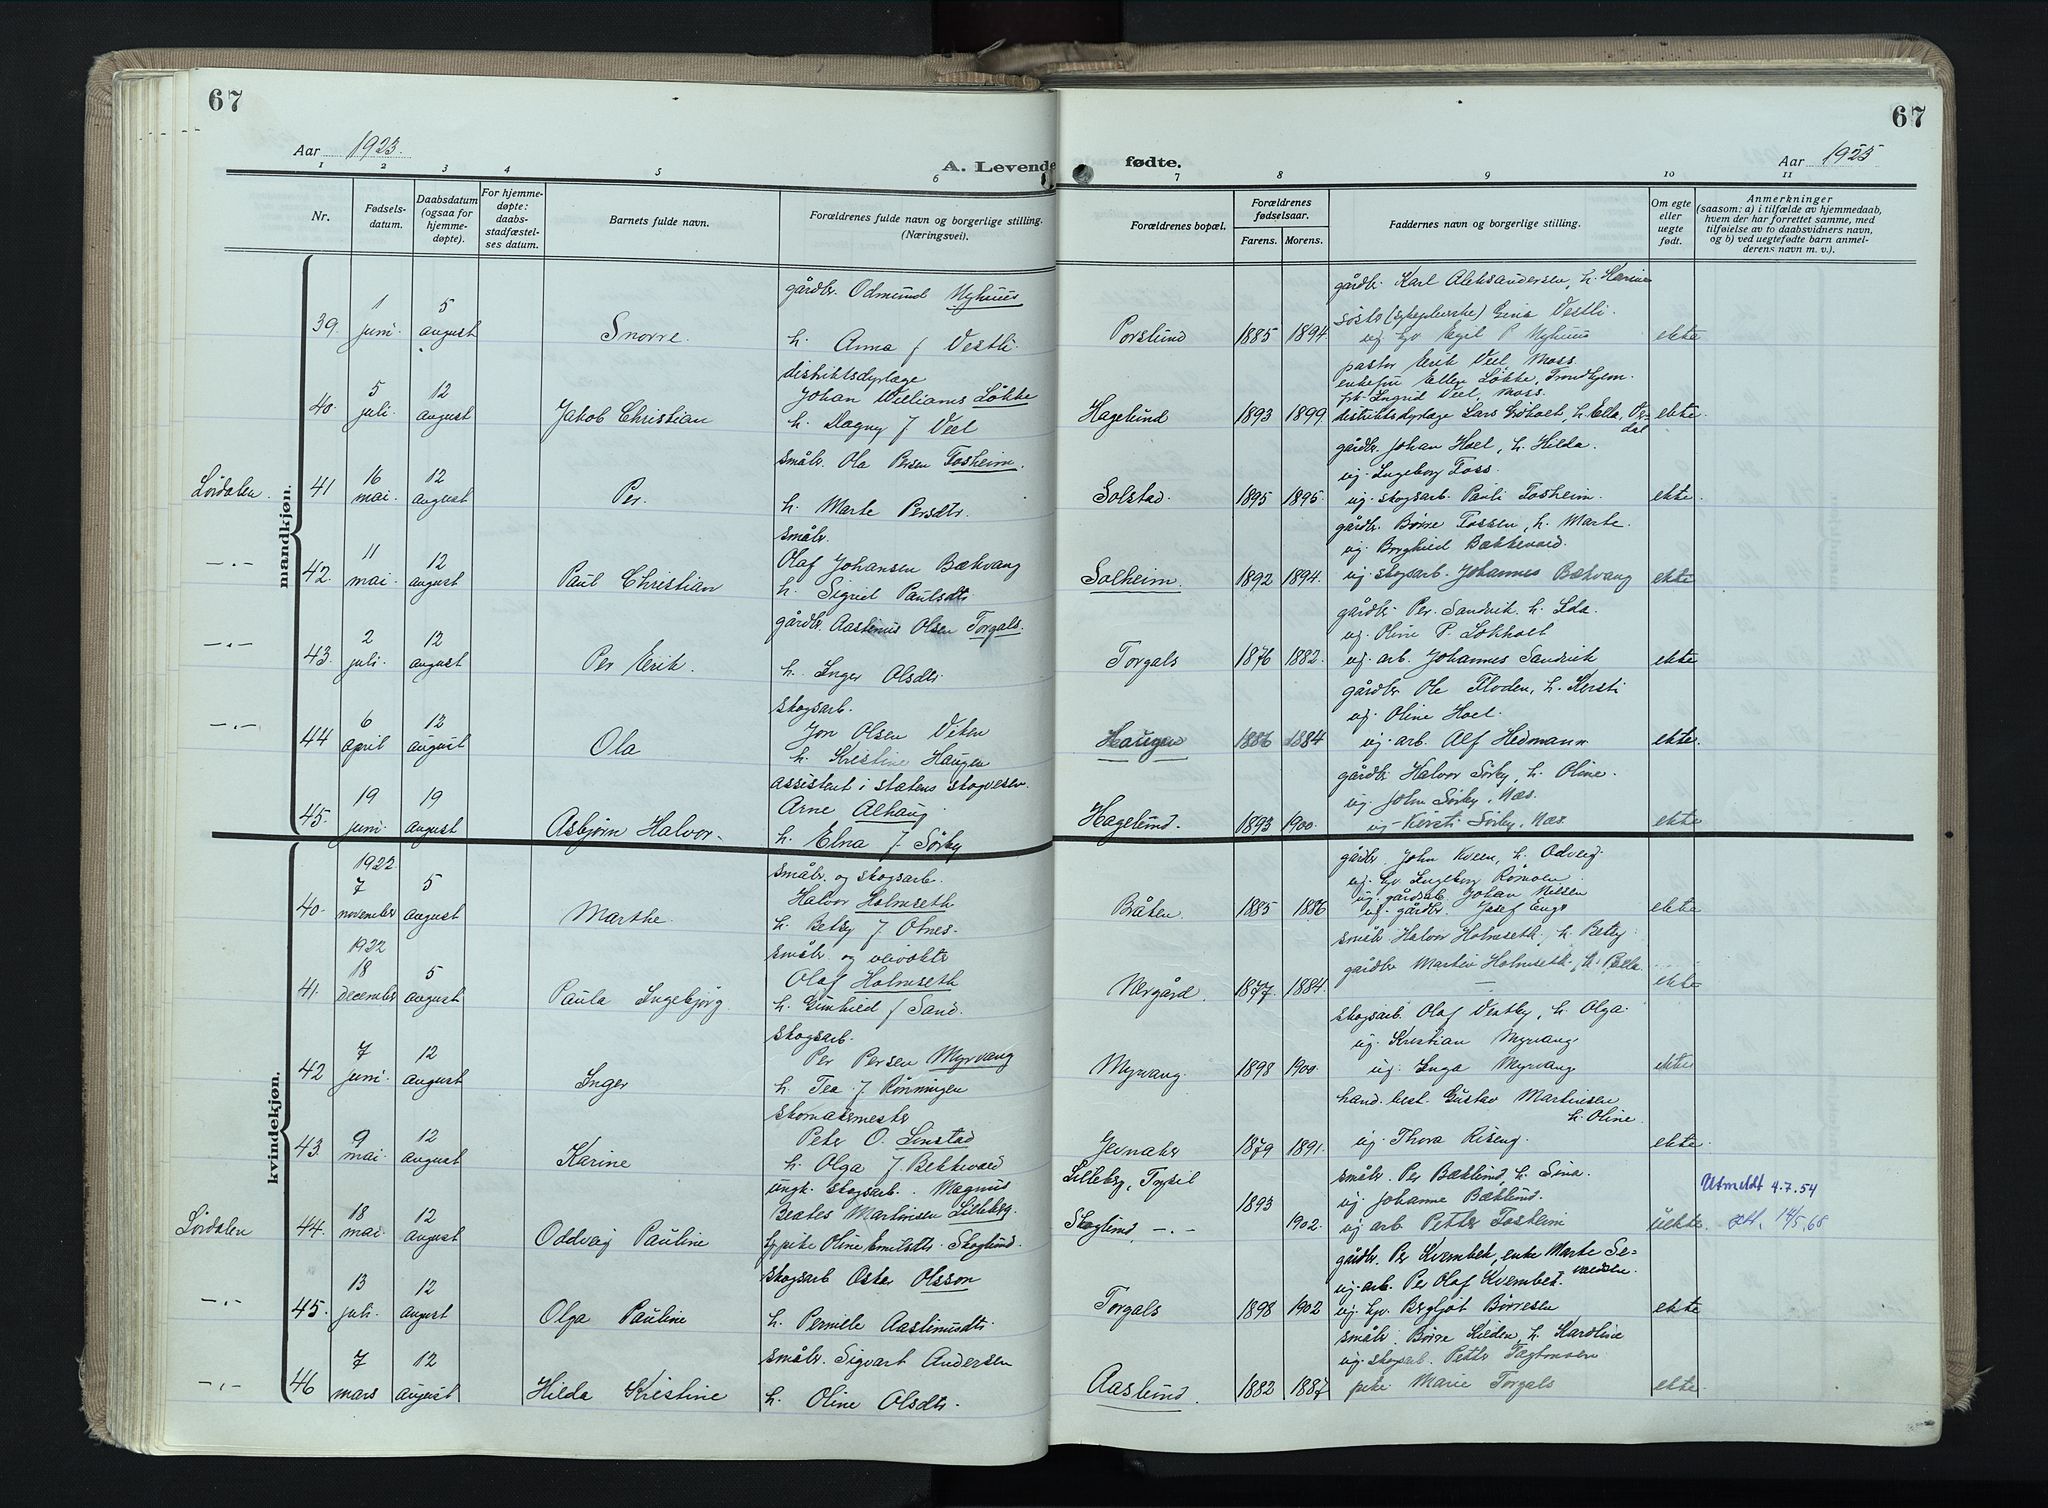 67
67
Aar 1923.
Aar 1925
A. Levende fødte.
1 2 3 4 5 6 7 8 9 10 11
Nr.
Fødsels-
datum.
Daabsdatum
(ogsaa for
hjemme-
døpte).
For hjemme-
døpte:
daabs-
stadfæstel-
ses datum.
Barnets fulde navn.
Forældrenes fulde navn og borgerlige stilling.
(Næringsvei).
Forældrenes bopæl.
Forældrenes
fødselsaar.
Farens. Morens.
Faddernes navn og borgerlige stilling.
Om egte
eller
uegte
født.
Anmerkninger
(saasom: a) i tilfælde av hjemmedaab,
hvem der har forrettet samme, med
tilføielse av to daabsvidners navn,
og b) ved uegtefødte barn anmel-
derens navn m. v.).
mandkjøn.
39. 1 juni. 5 august Snorre.
gårdbr. Odmund Nyhuus
h. Anna f Vestli.
Porslund 1885 1894
gårdbr. Karl Aleksandersen, h. Karine
Gina Vestli.
Egil P Nyhuus
ekte
40. 5 juli. 12 august Jakob Christian
distriktsdyrlæge
Johan Williams Løkke
h. Dagny f Veel
Hagelund 1893 1899
pastor Erik Veel, Moss
enkefru Ellen Løkke, Trondhjem.
frk. Ingrid Veel, Moss.
distriktsdyrlæge Lars Grøholt, h. Ella,
ekte
Lørdalen.
41 16 mai. 12 august Per.
småbr. Ola Persen Fosheim.
h. Marte Persdtr.
Solstad 1895 1895
gårdbr. Johan Hoel, h. Hilda.
ug. Ingeborg Foss.
ug. skogsarb. Pauli Fosheim.
ekte
—„—
42. 11 mai. 12 august Paul Christian
småbr.
Olaf Johansen Bækvang
h. Sigrid Paulsdtr
Solheim 1892 1894.
gårdbr. Børre Fossen, h. Marte.
ug. Borghild Bækkevold.
ug. skogsarb. Johannes Bækvang
ekte
—„—
43. 2 juli. 12 august Per Erik.
gårdbr. Aastenius Olsen Torgals.
h. Inger Olsdtr
Torgals 1876 1882.
gårdbr. Per. Sandvik. h. Ida.
ug. Oline P. Løkholt
ug. arb. Johannes Sandvik
ekte
—„—
44 6 april 12 august Ola
skogsarb.
Jon Olsen Veten
h. Kristine Haugen
Haugen 1886 1884
gårdbr Ole Floden, h. Kersti
ug. Oline Hoel.
ug. arb. Alf Hedmann
ekte.
45. 19 juni. 19 august Asbjørn Halvor.
assistent i statens skogvesen.
Arne Alhaug
h. Elna f. Sørby
Hagelund. 1893 1900.
gårdbr Halvor Sørby, h. Oline.
ug. John Sørby, Næs.
ug. Kersti Sørby, Næs.
ekte
kvindekjøn.
40. 1922. 7 november 5 august Marthe
småbr. og skogsarb.
Halvor Holmseth
h. Betsy f Otnes.
Bråten 1885 1886
gårdbr. John Kveen, h. Odveig.
ug. Ingeborg Romoen.
ug. gårdsarb Johan Nilsen
ug. gårdbr. Josef Engs
ekte
41. 1922 18 december 5 august Paula Ingebjørg
småbr. og veivokter
Olaf Holmseth
h. Gunhild f Sand.
Nergård. 1877 1884.
småbr Halvor Holmseth, h. Betsy.
gårdbr Martin Holmseth, h.
ekte
42 7 juni. 12 august Inger
skogsarb.
Per Persen Myrvang
h. Tea f Rønningen
Myrvang. 1898 1900.
skogsarb. Olaf Vestby, h. Olga.
ug. Kristian Myrvang.
ug. Inga Myrvang.
ekte
43. 9 mai. 12 august Karine
skomakermester
Peter O. Linstad
h. Olga f. Bekkevold
Jevnaker 1879 1891.
hand. best. Gustav Martinsen
h. Oline.
ug. Thora Riseng.
ekte.
Lørdalen
44. 18 mai. 12 august Oddveig Pauline
ungk. skogsarb. Magnus
Beates Martinsen Lilleberg.
pike Oline Emilsdtr. Skoglund.
Lilleberg, Trysil 1893
Skoglund, —„— 1902.
småbr. Per Bæklund, h. Sina.
ug Johanne Bæklund.
ug arb. Petter Fosheim
uekte.
Utmeldt 4.7.54
att. 14/5.68
—„—
45. 13 juli. 12 august Olga Pauline
skogsarb Oskar Olsson
h. Pernille Aastenusdtr.
Torgals 1898 1902
gårdbr. Per Kvernbek, enke Marte Se-
valdsen.
ug. arb. Per Olaf Kvernbek.
ug. Bergljot Børresen
ekte
—„—
46 7 mars 12 august Hilda Kristine
småbr. Sigvart Andersen
h. Oline Olsdtr.
Aaslund 1882 1887
småbr. Børre Kilden, h. Karoline
ug. skogsarb. Petter
pike Marie Torgals
ekte.